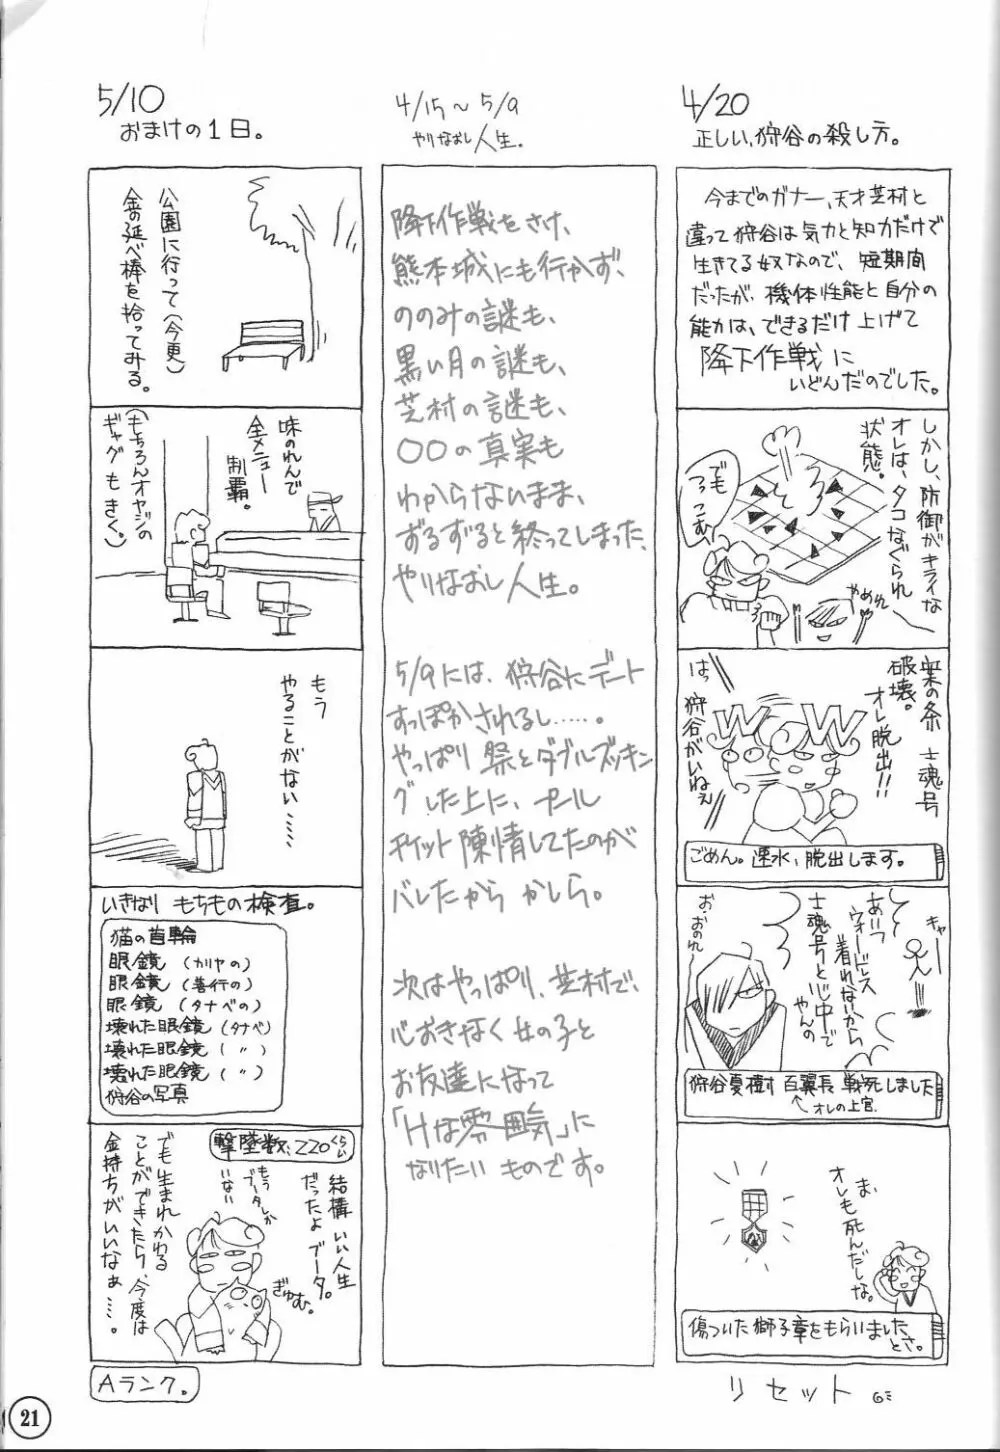 4/20
正しい、狩谷の殺し方。
今までのガナー、天才芝村と
違って狩谷は気力と知力だけで
生きてる奴なので、短期間
だったが、機体性能と自分の
能力は、できるだけ上げて
降下作戦に
いどんだのでした。
しかし、防御がキライな
オレは、タコなぐられ
状態。
でも
つっこむ
やめれ
士魂号
破壊。
オレ脱出!!
はっ 狩谷がいねぇ
ごめん。速水、脱出します。
キャー
あいつ
ウォードレス
着れないから
士魂号と心中で
やんの
お・おのれ
狩谷夏樹 百翼長 戦死しました
オレの上官
ま、
オレも死んだしな。
傷ついた獅子章をもらいました
とさ。
リセット
4/15～5/9
やりなおし人生。
降下作戦をさけ、
熊本城にも行かず、
ののみの謎も、
黒い月の謎も、
芝村の謎も、
〇〇の真実も
わからないまま、
ずるずると終ってしまった、
やりなおし人生。
5/9には、狩谷にデート
すっぽかされるし……。
やっぱり 祭とダブルブッキン
グした上に、プール
チケット陳情してたのが
バレたから かしら。
次はやっぱり、芝村で、
心おきなく女の子と
お友達になって
「Hな雰囲気」に
なりたい ものです。
5/10
おまけの1日。
公園に行って(今更)
金の延べ棒を拾ってみる。
味のれんで
全メニュー
制覇。
(もちろんオヤジの
ギャグもきく。)
もう
やることがない……
いきなり もちもの検査。
猫の首輪
眼鏡 (カリヤの)
眼鏡 (善行の)
眼鏡 (タナベの)
壊れた眼鏡 (タナベ)
壊れた眼鏡 (〃)
壊れた眼鏡 (〃)
狩谷の写真
撃墜数:220くらい
結構 いい人生
だったよ ブータ。
もう
ブータしか
いない
ぎゅむ。
でも生まれかわる
ことができたら、今度は
金持ちがいいなぁ…。
Aランク。
21